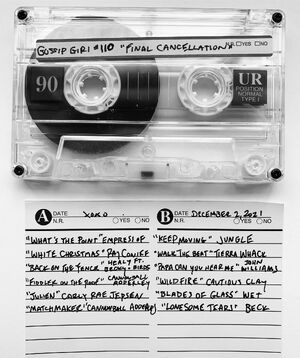 GOSSIP GIRL #110 "FINAL CANCELLATION"
N.R. YES NO
90
UR
POSITION
NORMAL
TYPE I
A DATE XOXO
N.R. YES NO
"WHAT'S THE POINT" EMPRESS OF
"WHITE CHRISTMAS" RAY CONIFF
"BACK ON THE FENCE" HEALY FT.
BIRDS
"FIDDLER ON THE ROOF" CANNONBALL
ADDERLEY
"JULIEN" CARLY RAE JEPSEN
"MATCHMAKER" CANNONBALL ADDERLEY
B DATE DECEMBER 2, 2021
N.R. YES NO
"KEEP MOVING" JUNGLE
"WALK THE BEAT" TIERRA WHACK
"PAPA CAN YOU HEAR ME" JOHN
WILLIAMS
"WILDFIRE" CAUTIOUS CLAY
"BLADES OF GLASS" WET
"LONESOME TEARS" BECK